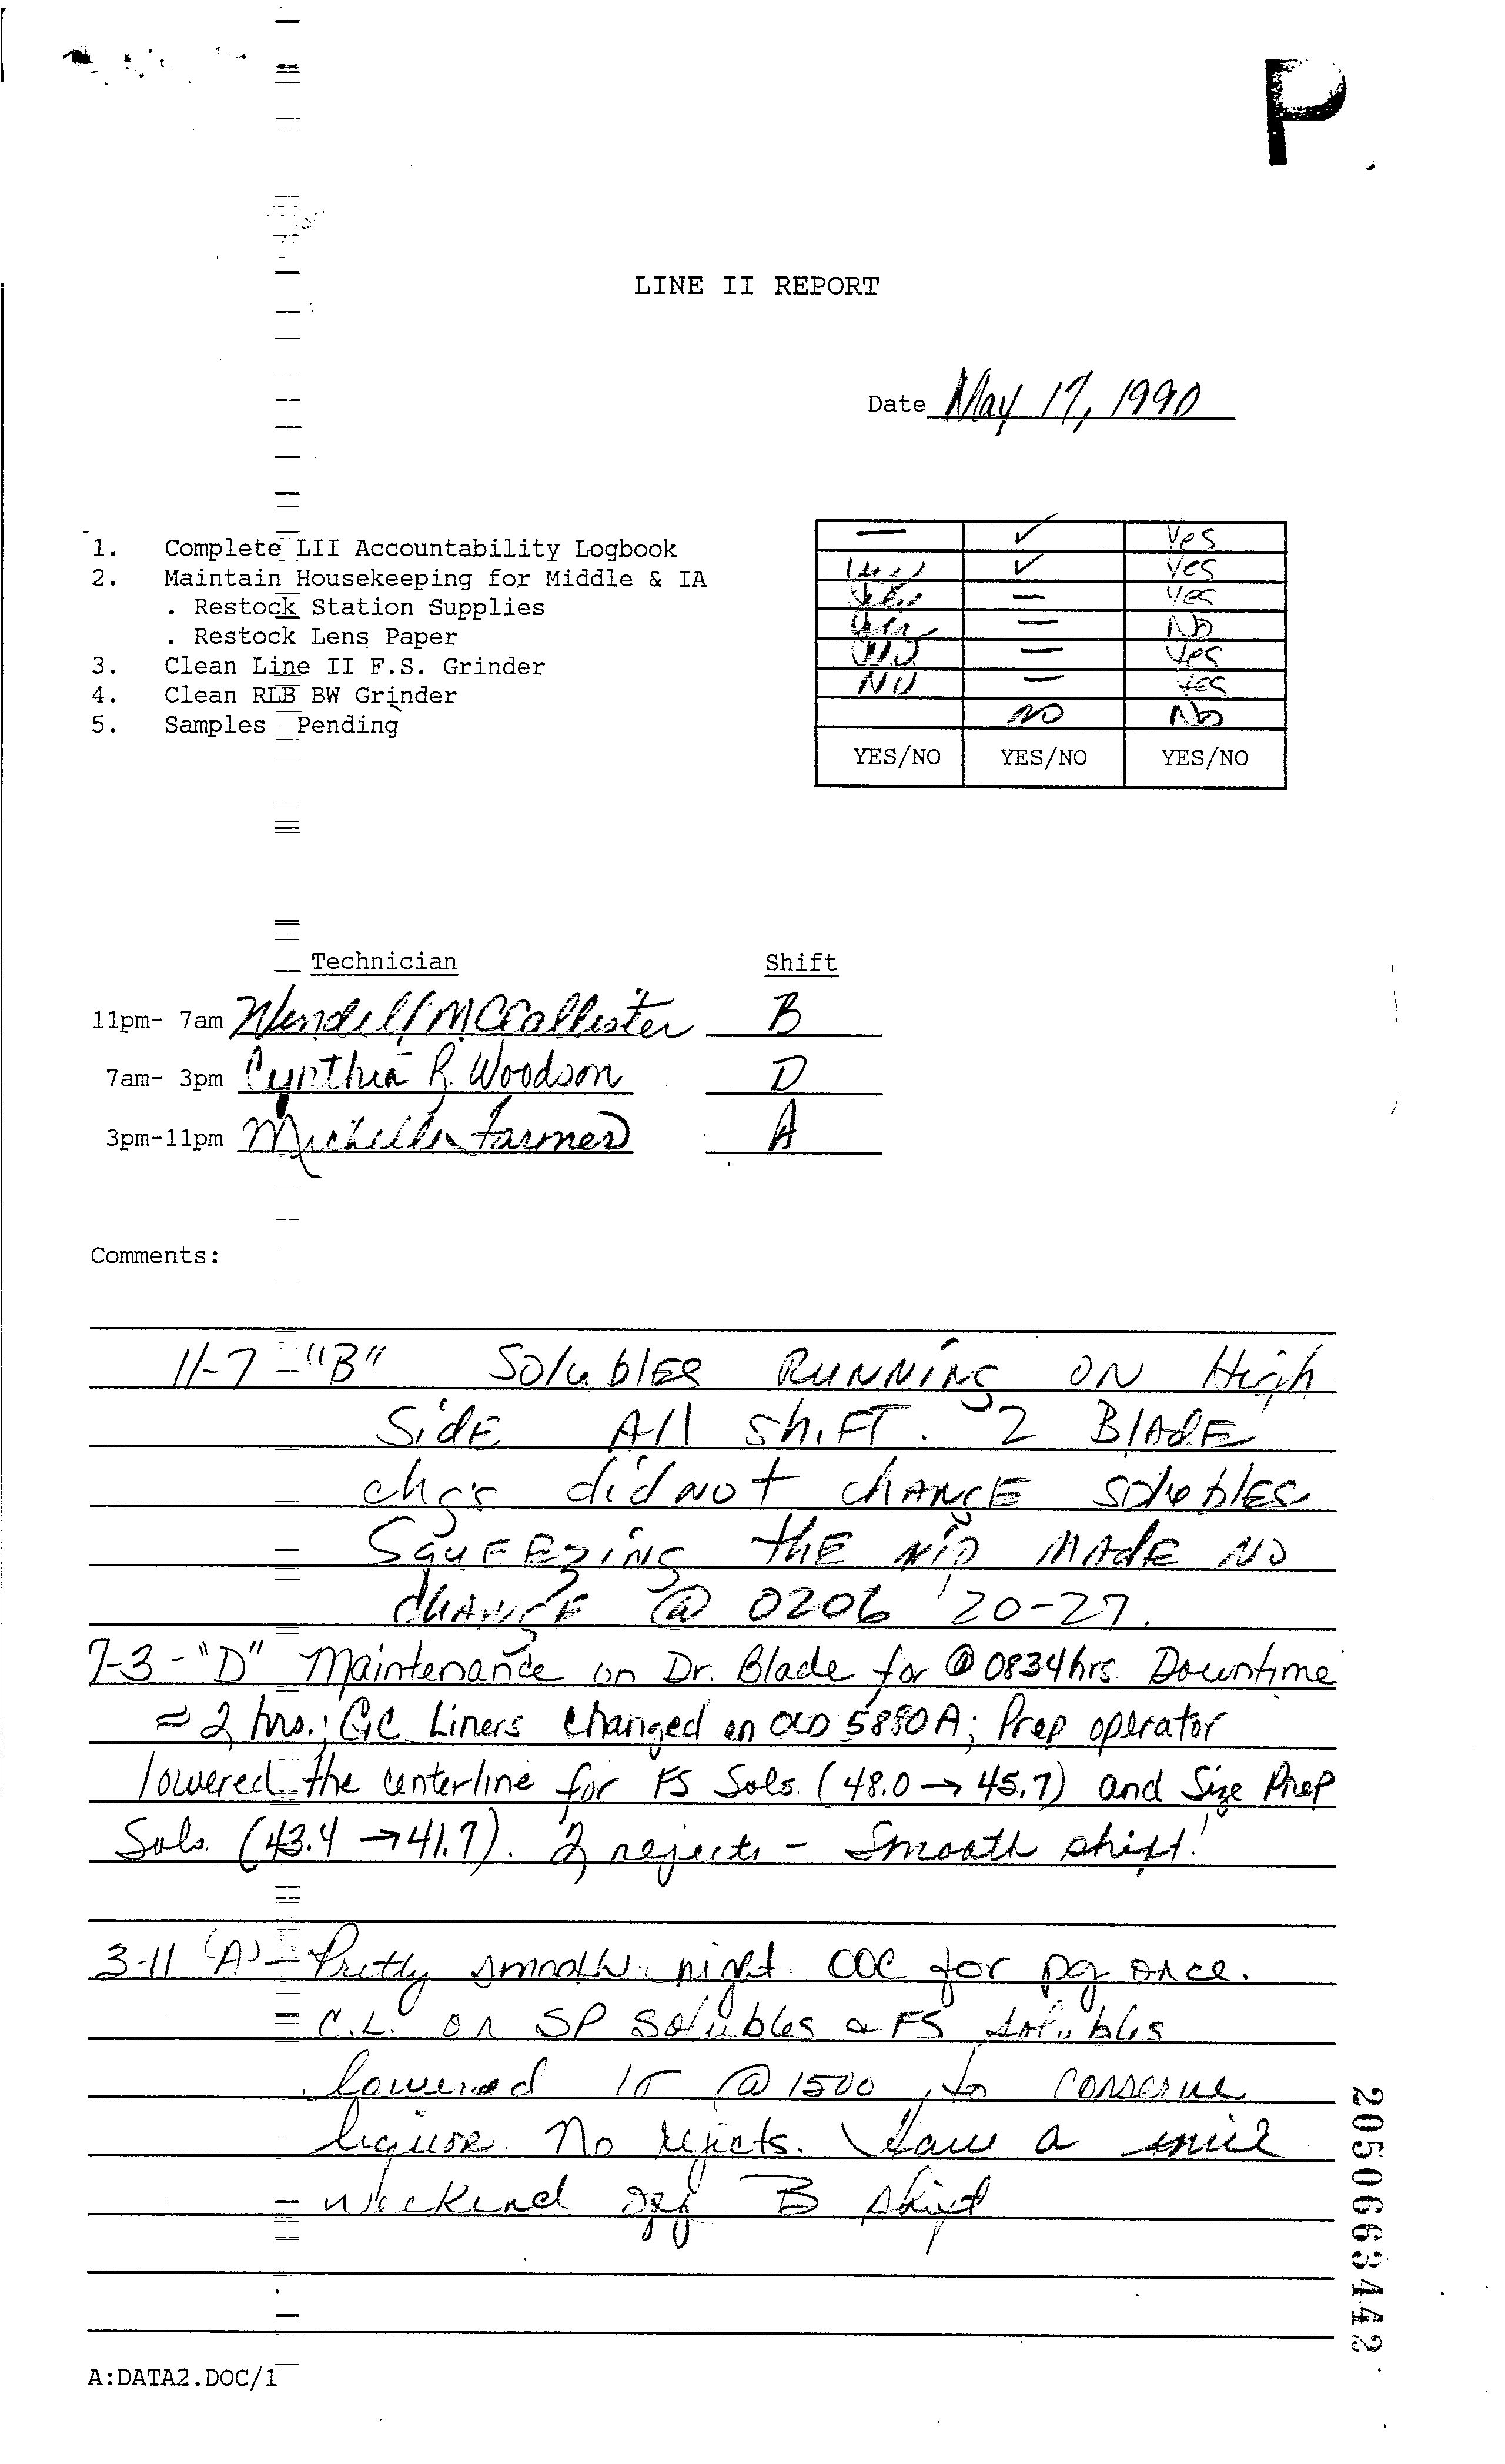 P
LINE II REPORT
Date May 17, 1990
1. Complete LII Accountability Logbook — ✓ Yes
2. Maintain Housekeeping for Middle & IA ✓ Yes
. Restock Station Supplies — Yes
. Restock Lens Paper — No
3. Clean Line II F.S. Grinder — Yes
4. Clean RLB BW Grinder NO — Yes
5. Samples Pending NO No
YES/NO YES/NO YES/NO
Technician Shift
11pm- 7am Wendell McCallister B
7am- 3pm Cynthia R. Woodson D
3pm-11pm Michelle Farmer A
Comments:
11-7 - "B" Solubles RUNNING ON High
SidE All ShiFT. 2 BlAdE
chg's did NOT chANGE solubles
SquEEzing thE nip MAdE NO
chANGE @ 0206 20-27.
7-3 - "D" Maintenance on Dr. Blade for @ 0834 hrs. Downtime
≈ 2 hrs.; GC Liners changed on 5880A; Prep operator
lowered the centerline for FS Sols. (48.0 → 45.7) and Size Prep
Sols. (43.4 → 41.7). 2 rejects - Smooth shift!
3-11 (A) - Pretty smooth night. OOC for pg once.
C.L. on SP Solubles & FS solubles
lowered 1σ @ 1500 to conserve
liquor. No rejects. Have a nice
weekend off B shift
2050663442
A:DATA2.DOC/1